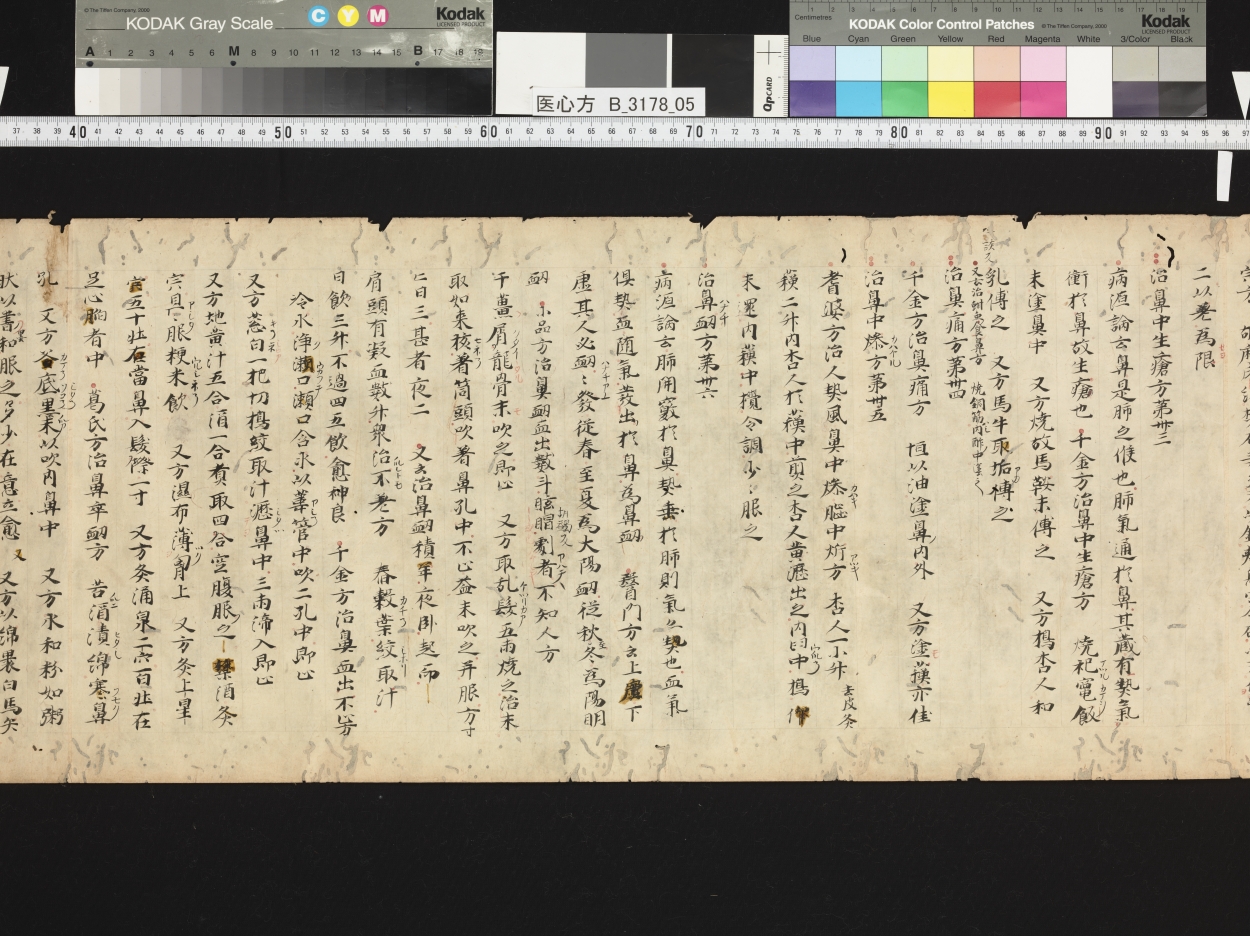 © The Tiffen Company, 2000
KODAK Gray Scale
C Y M
Kodak
LICENSED PRODUCT
A 1 2 3 4 5 6 M 8 9 10 11 12 13 14 15 B 17 18 19
医心方 B_3178_05
dpCARD
Centimetres
KODAK Color Control Patches
© The Tiffen Company, 2000
Kodak
LICENSED PRODUCT
Blue Cyan Green Yellow Red Magenta White 3/Color Black
37 38 39 40 41 42 43 44 45 46 47 48 49 50 51 52 53 54 55 56 57 58 59 60 61 62 63 64 65 66 67 68 69 70 71 72 73 74 75 76 77 78 79 80 81 82 83 84 85 86 87 88 89 90 91 92 93 94 95 96 97
二以差為限
治鼻中生瘡方第卅三
病源論云鼻是肺之候也肺氣通於鼻其蔵有熱氣
衝於鼻故生瘡也 千金方治鼻中生瘡方 燒祀竃飯
末塗鼻中 又方燒故馬鞍末傅之 又方搗杏人和
乳傅之 又方馬牛取垢傅之
治鼻痛方第卅四
千金方治鼻痛方 恒以油塗鼻内外 又方塗蘓亦佳
治鼻中燥方第卅五
耆婆方治人熱風鼻中燥腦中㾕方 杏人一小升 去皮炙
蘓二升内杏人於蘓中煎之杏人黄瀝出之内臼中搗
末還内蘓中攪令調少〻服之
治鼻衂方第卅六
病源論云肺開竅於鼻熱乗於肺則氣亦熱也血氣
俱熱血随氣發出於鼻為鼻衂 醫門方云上虚下
虚其人必衂〻發従春至夏為大陽衂従秋冬為陽明
衂 小品方治鼻衂血出數斗眩冒劇者不知人方
干薑屑龍骨末吹之即止 又方取乱髮五両燒之治末
取如棗核著筒頭吹著鼻孔中不止益末吹之并服方寸
匕日三甚者夜二 又云治鼻衂積年夜卧起而
肩頭有凝血數升衆治不差方 舂穀葉絞取汁
日飲三升不過四五飲愈神良 千金方治鼻血出不止方
冷水浄瀨口瀨口含水以葦管中吹二孔中即止
又方葱白一把切搗絞取汁瀝鼻中三両渧入即止
又方地黄汁五合酒一合煮取四合空腹服之
服粳米飲 又方濕布薄胷上 又方灸上星
五十壮右當鼻入髮際一寸 又方灸涌泉二穴百壮在
足心陷者中 葛氏方治鼻卒衂方 苦酒漬綿塞鼻
孔 又方釜底墨末以吹内鼻中 又方水和粉如粥
状以蜜和服之多少在意立愈 又方以綿裹白馬矢